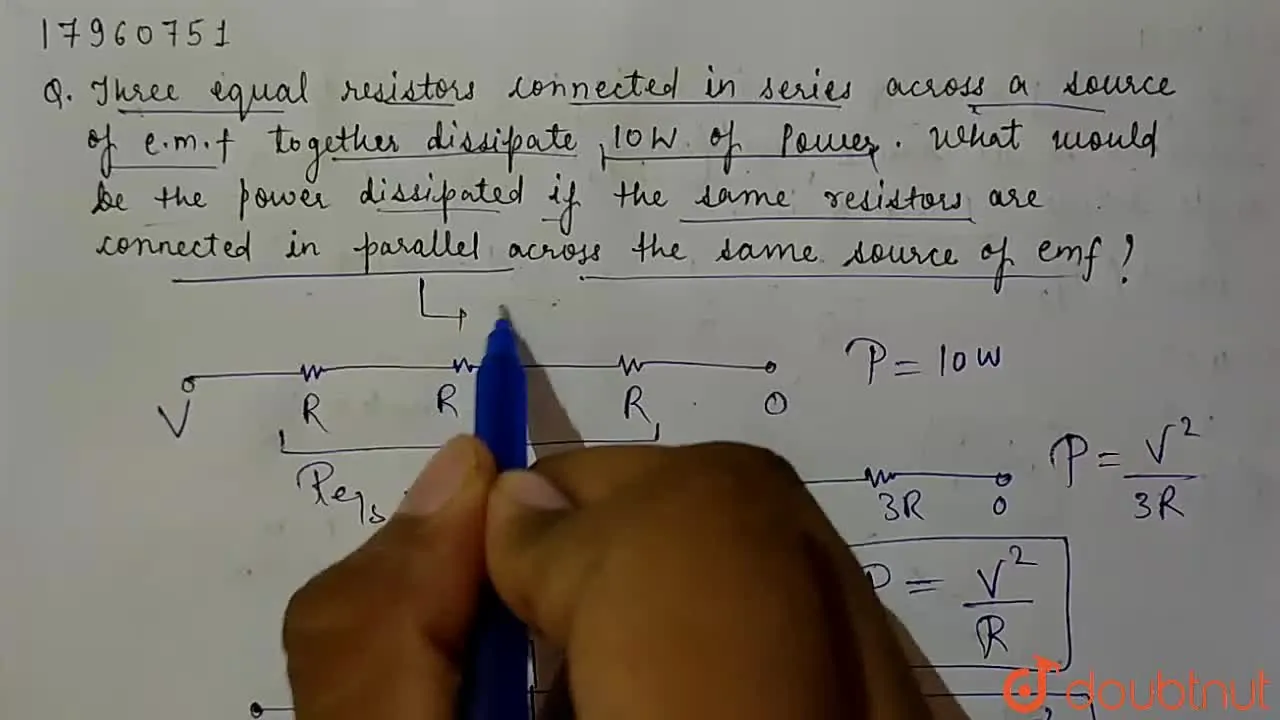 17960751
Q. Three equal resistors connected in series across a source
of e.m.f together dissipate 10W of Power. What would
be the power dissipated if the same resistors are
connected in parallel across the same source of emf?
P = 10W
V R R R 0
P = V²/3R
Req s
3R 0
P = V²/R
doubtnut